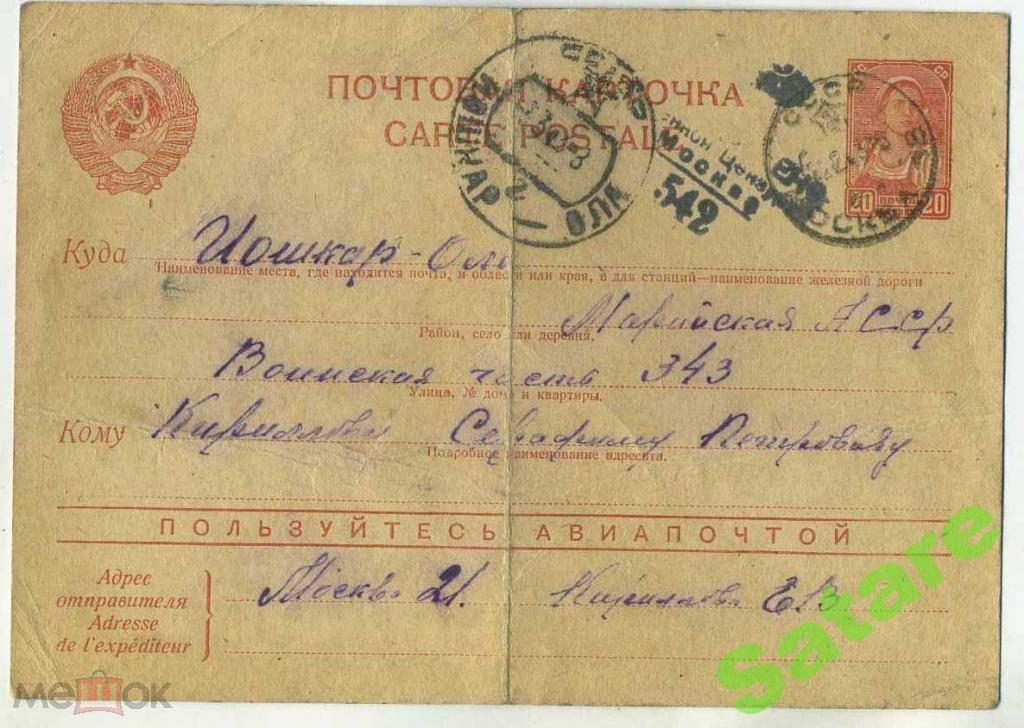 ПОЧТОВАЯ КАРТОЧКА
CARTE POSTALE
Москва
542
20 ПОЧТА 20
Куда Йошкар-Ола
Наименование места, где находится почта, и области или края, а для станций—наименование железной дороги
Марийская АССР
Район, село или деревня.
Воинская часть 343
Улица, № дома и квартиры.
Кому Кириллову Серафиму Петровичу
Подробное наименование адресата.
ПОЛЬЗУЙТЕСЬ АВИАПОЧТОЙ
Адрес
отправителя
Adresse
de l'expéditeur
Москва 21. Кириллова Е.В.
Satare
мешок